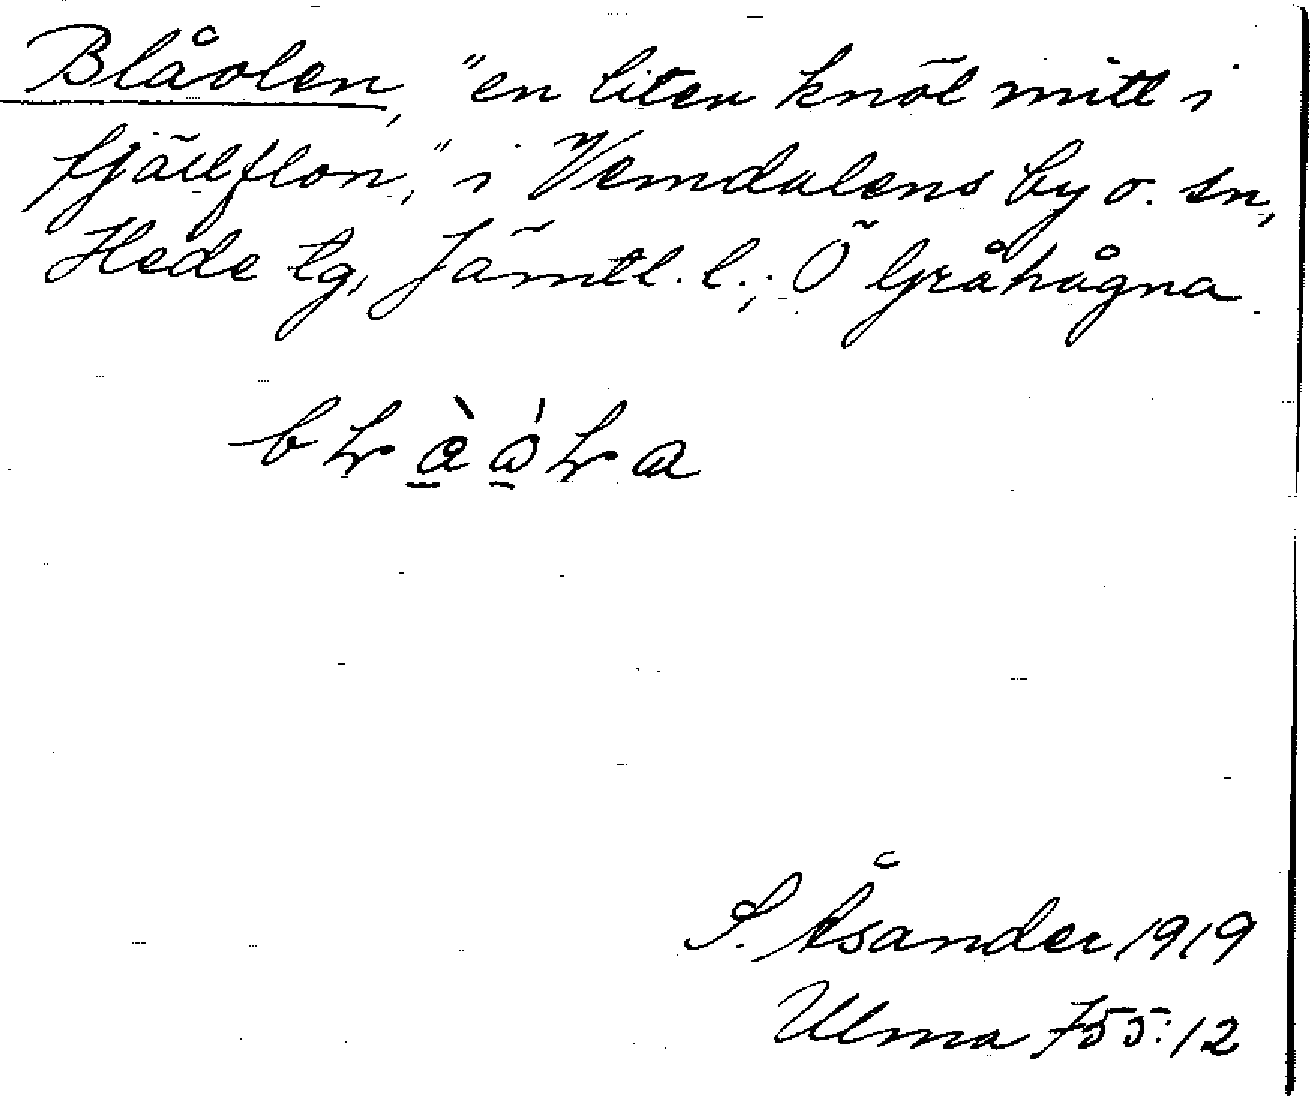 Blåolen, "en liten knöl mitt i
fjällflon," i Vemdalens by o. sn,
Hede tg, Jämtl. l.; Ö Gråhågna.
S. Åsander 1919
Ulma 755:12